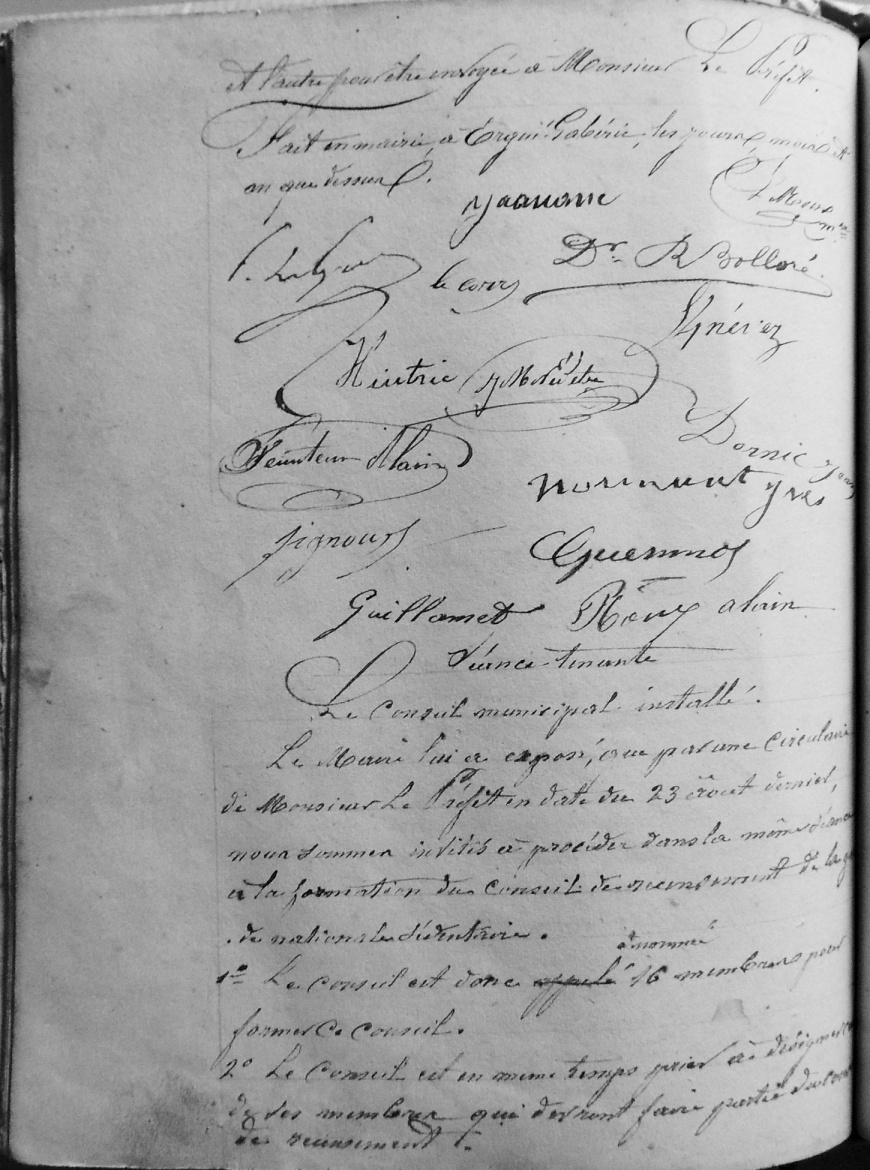 et l'autre pour être envoyée à Monsieur Le Préfet.
Fait en mairie, à Ergué-Gabéric, les jours, mois et
an que dessus.
Yaouanc
Dr. R Bolloré
le corre
Hiutric
Dornic
Feunteun Alain
Normant Yves
Signours
Guennos
Guillamet Réouz alain
Séance tenante
Le Conseil municipal installé.
Le Maire lui a exposé, que par une circulaire
de Monsieur Le Préfet en date du 23 août dernier,
nous sommes invités à procéder dans la même séance
à la formation du Conseil de recensement de la gar
de nationale sédentaire.
à nommer
1° Le Conseil est donc appelé 16 membres pour
former ce conseil.
2° Le Conseil est en même temps prier à désigner
de ses membres qui devront faire partie du
de recensement.